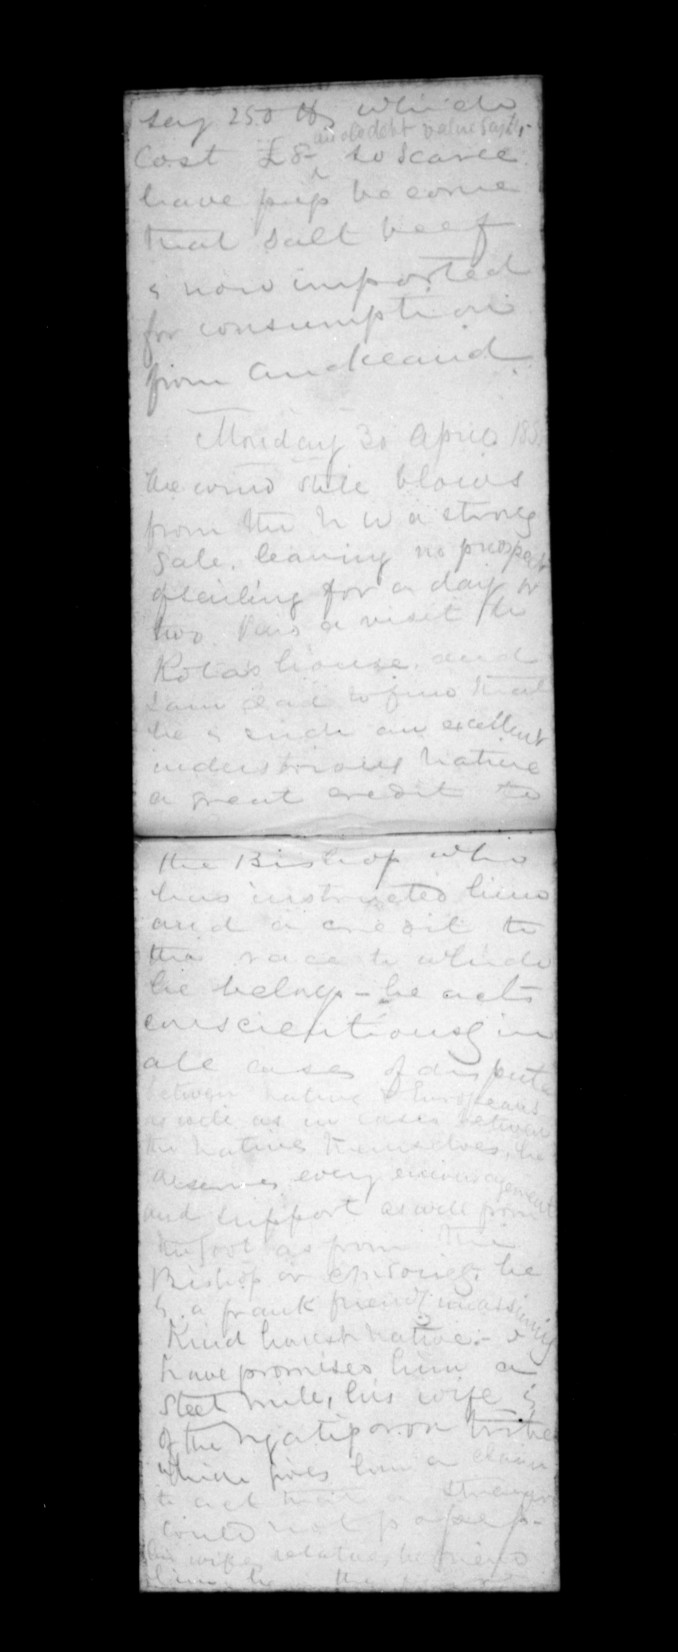 say 250 lbs which
cost £8 - so scarce
have pigs become
that salt beef
is now imported
for consumption
from Auckland
Monday 30 April 185
the wind still blows
from the N W a strong
gale. leaving no prospect
of sailing for a day or
two. Pais a visit to
Kota's house. and
I am glad to find that
he is such an excellent
industrious native
a great credit to
the Bishop who
has instructed him
and a credit to
the race to which
he belongs - he acts
conscientiously in
all cases of dispute
between native & Europeans
as well as in cases between
the natives themselves. he
deserves every encouragement
and support as well from
the Govt as from the
Bishop or he
is a frank friendly unassuming
kind honest native. - I
have promised him a
steel mill, his wife is
of the Ngatiporou tribe
which gives him a claim
to act that a stranger
could not possess -
his wifes relatives befriend
him. the